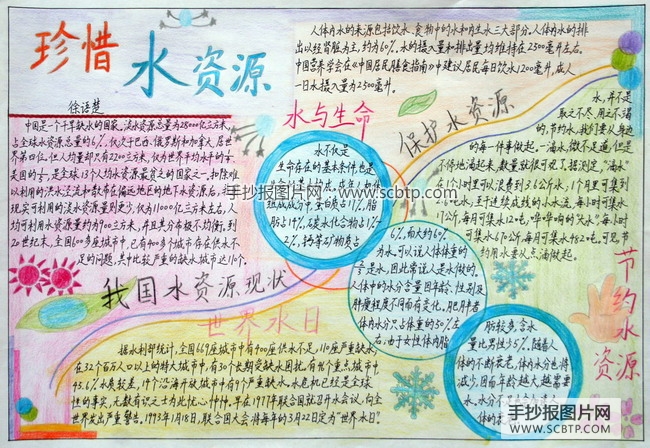 珍惜
水资源
徐语楚
中国是一个干旱缺水的国家。淡水资源总量为28000亿立方米,
占全球水资源总量的6%,仅次于巴西、俄罗斯和加拿大,居世
界第四位,但人均量却只有2200立方米,仅为世界平均水平的
是全球13个人均水资源最贫乏的国家之一,扣除难
以利用的洪水泾流和散布在偏远地区的地下水资源后,
现实可利用的淡水资源量则更少,仅为11000亿立方米左右,人
均可利用水资源量约为900立方米,并且其分布极不均衡,到
20世纪末,全国600多座城市中,已有400多个城市存在供水不
足的问题,其中比较严重的缺水城市达110个。
我国水资源现状
人体内水的来源包括饮水、食物中的水和内生水三大部分。人体内水的排
出以经肾脏为主,约为60%,水的摄入量和排出量均维持在2500毫升左右。
中国营养学会在《中国居民膳食指南》中建议居民每日饮水1200毫升,成人
一日水摄入量为2500毫升。
水与生命
水不仅是
生命存在的基本条件,也是
组成成分中,蛋白质占17%,脂
肪占14%,碳水化合物占1.
2%,钙等矿物质占
6%,而大约60%
为水,可以说人体体重的
是水,因此常说人是水做的。
人体中的水分含量因年龄、性别及
肥瘦程度不同而有变化。肥胖者
体内水分只占体重的50%左
右,由于女性体内脂
肪较多,含水
量比男性少5%,随着人
体的不断衰老,体内水分也将
减少,因而年龄越大越需要
水,
保护水资源
水,并不是
取之不尽,用之不竭
的,节约水,我们要从身边
的每一件事做起。一滴水,微不足道,但是
不停地滴起来,数量就很可观了。据测定,“滴水”
在1个小时里可以浪费到3.6公斤水,1个月里可集到
2.6吨水,至于连续成线的小水流,每小时可集水
17公斤,每月可集水12吨,哗哗响的“大水”,每小时
可集水670公斤,每月可集水482吨。可见,节
约用水要从点滴做起。
节约水资源
世界水日
据水利部统计,全国669座城市中有400座供水不足,110座严重缺水;
在32个百万人口以上的特大城市中,有30个长期受缺水困扰。在46个重点城市中,
45.6%水质较差,14个沿海开放城市中有9个严重缺水。水危机已经是全球
性的事实,无数有识之士为此忧心忡忡。早在1977年联合国就召开水会议,向全
世界发出严重警告。1993年1月18日,联合国大会将每年的3月22日定为“世界水日”。
手抄报图片网 www.scbtp.com
手抄报图片网
WWW.SCBTP.COM